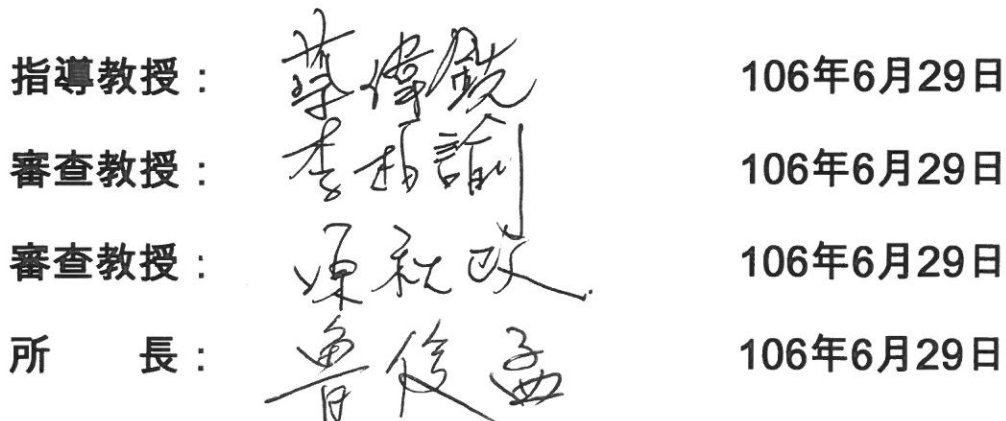 指導教授： 蔡偉銑 106年6月29日
審查教授： 李柏諭 106年6月29日
審查教授： 陳秋政 106年6月29日
所　　長： 魯俊孟 106年6月29日